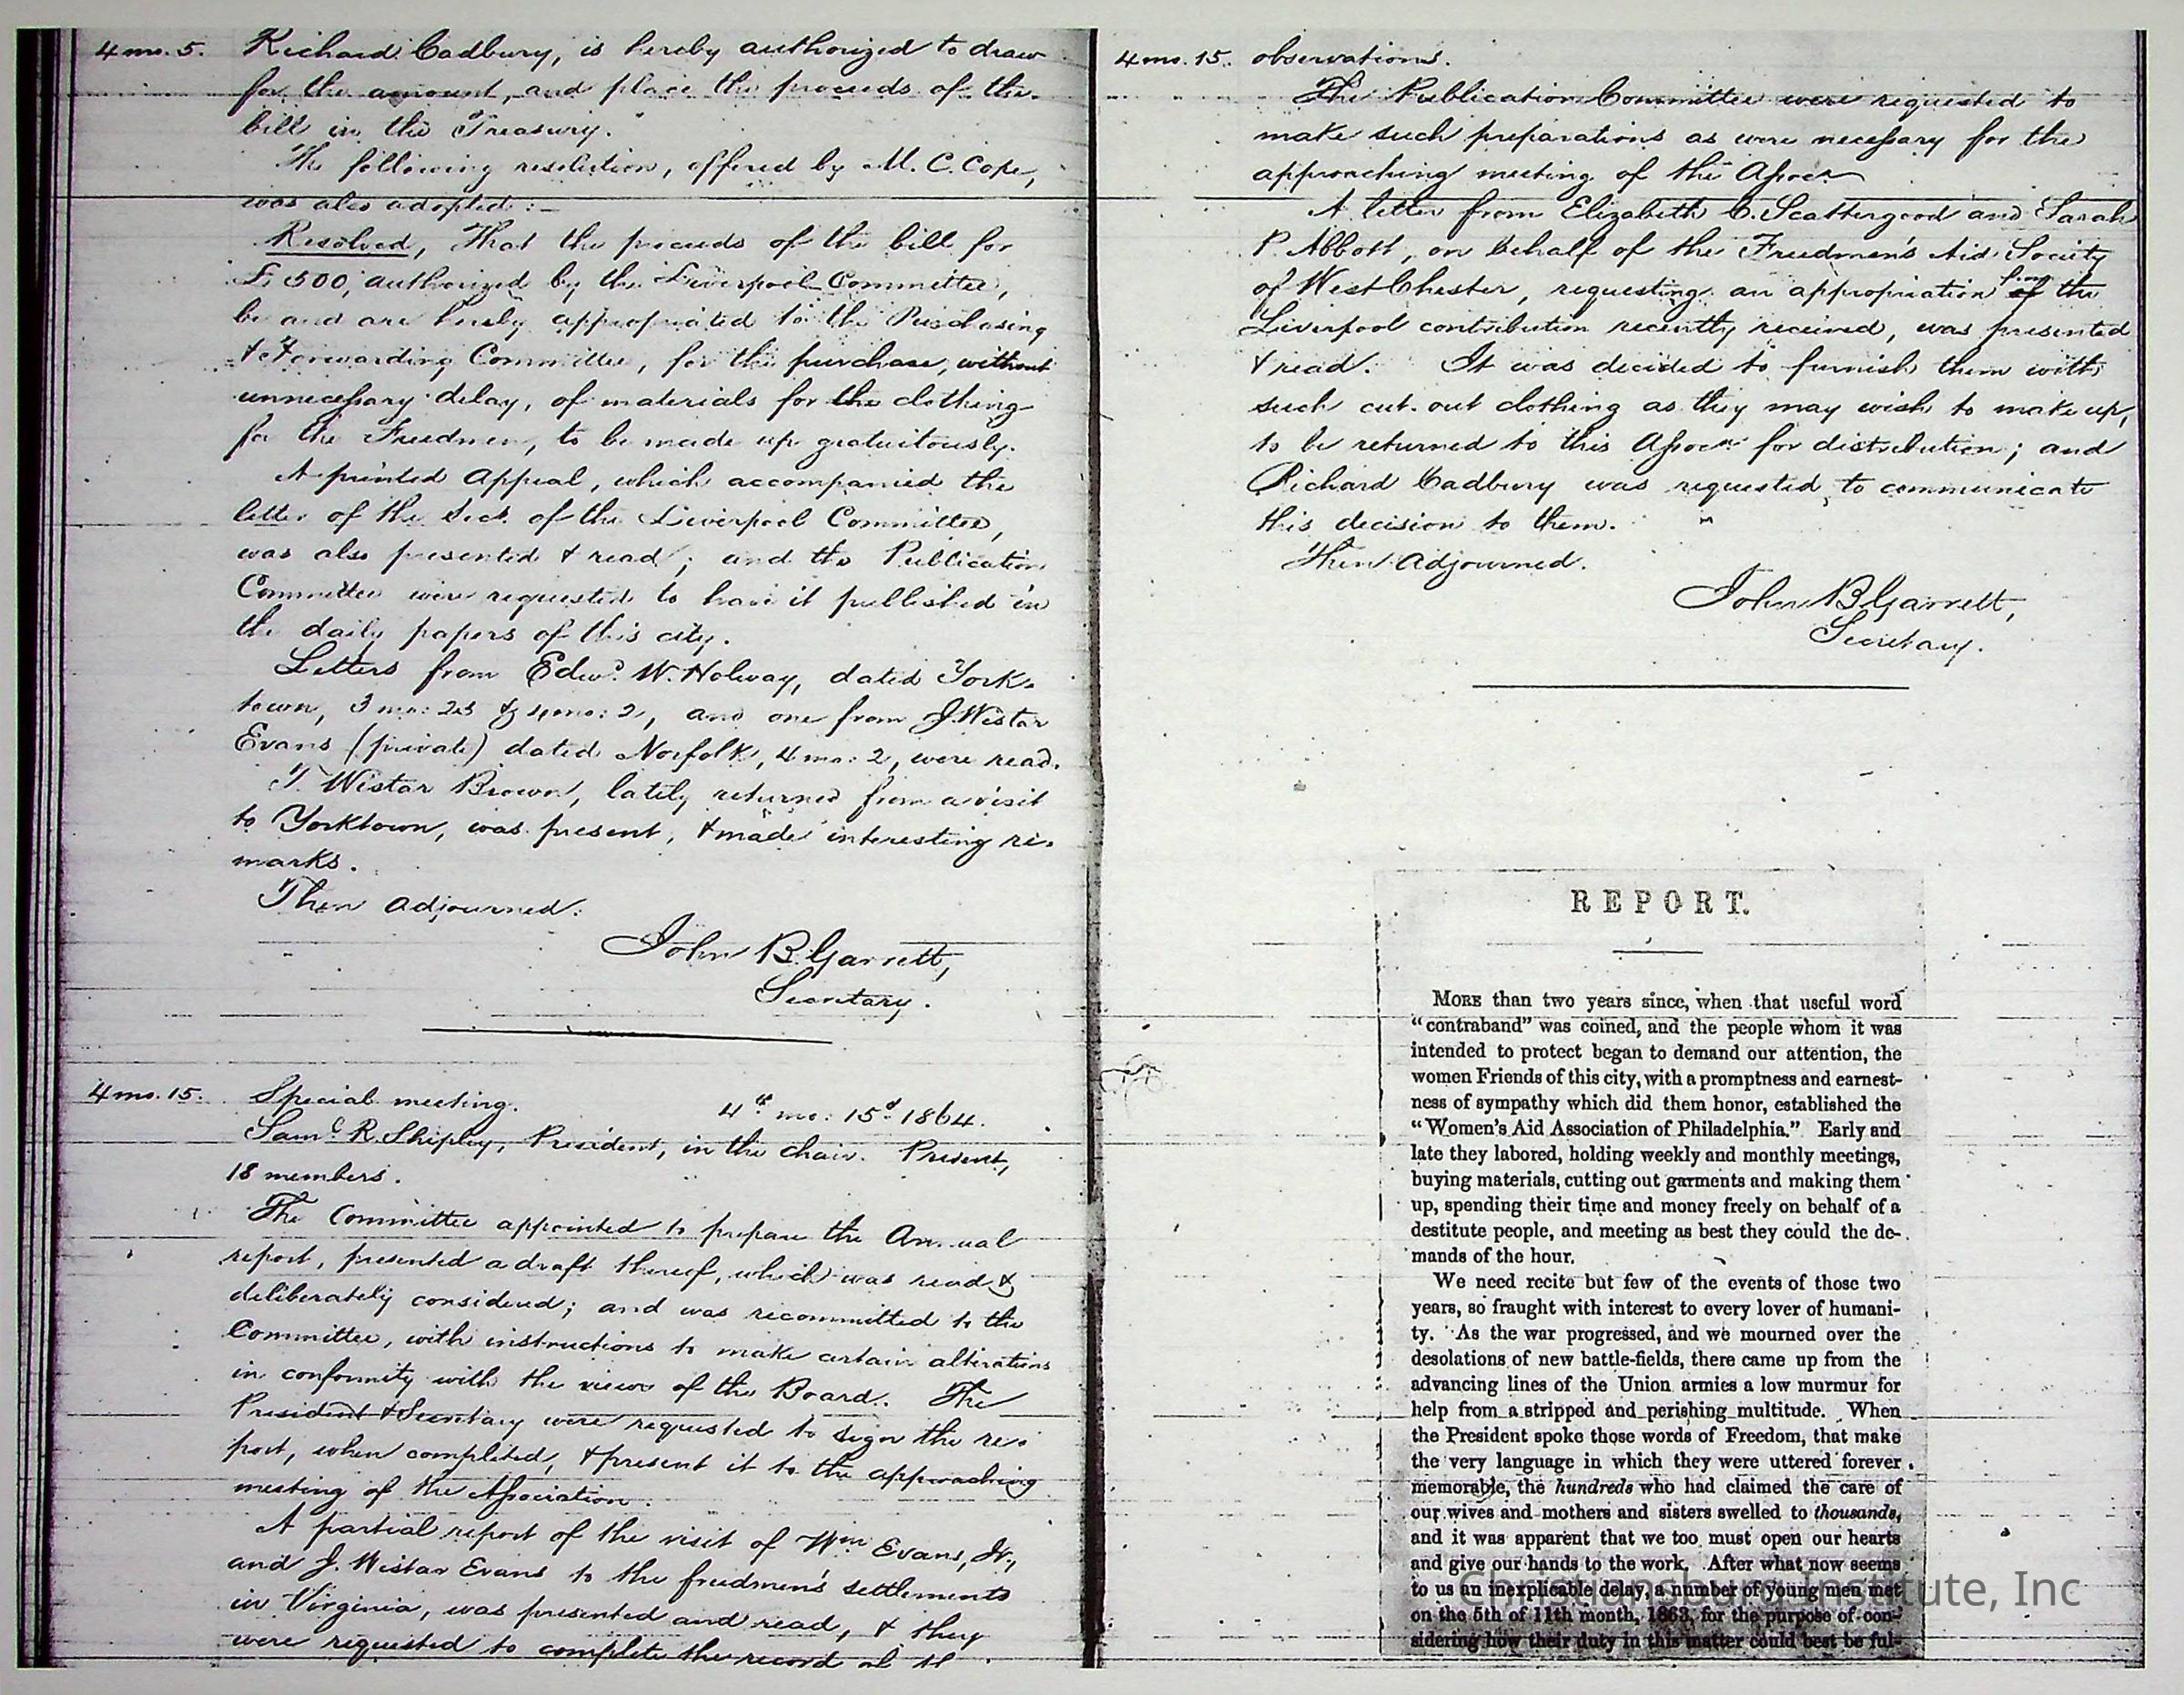 4 mo. 5. Richard Cadbury, is hereby authorized to draw
for the amount, and place the proceeds of the
bill in the Treasury."
The following resolution, offered by M. C. Cope,
was also adopted:—
Resolved, That the proceeds of the bill for
£500, authorized by the Liverpool Committee,
be and are hereby appropriated to the Purchasing
& Forwarding Committee, for the purchase, without
unnecessary delay, of materials for the clothing
for the Freedmen, to be made up gratuitously.
A printed Appeal, which accompanied the
letter of the Sect. of the Liverpool Committee,
was also presented & read; and the Publication
Committee were requested to have it published in
the daily papers of this city.
Letters from Edwd. W. Holway, dated York-
town, 3 mo: 28 & 4 mo: 2, and one from J. Wistar
Evans (private) dated Norfolk, 4 mo: 2, were read.
T. Wistar Brown, lately returned from a visit
to Yorktown, was present, & made interesting re-
marks.
Then adjourned.
John B. Garrett,
Secretary.
4 mo. 15. Special meeting. 4th mo: 15d 1864.
Saml. R. Shipley, President, in the chair. Present,
18 members.
The Committee appointed to prepare the Annual
report, presented a draft thereof, which was read &
deliberately considered; and was recommitted to the
Committee, with instructions to make certain alterations
in conformity with the views of the Board. The
President & Secretary were requested to sign the re-
port, when completed, & present it to the approaching
meeting of the Association.
A partial report of the visit of Wm Evans, Jr.,
and J. Wistar Evans to the freedmen's settlements
in Virginia, was presented and read, & they
were requested to complete the record of th
4 mo. 15. observations.
The Publication Committee were requested to
make such preparations as were necessary for the
approaching meeting of the Assocn
A letter from Elizabeth C. Scattergood and Sarah
P. Abbott, on behalf of the Freedmen's Aid Society
of West Chester, requesting an appropriation from of the
Liverpool contribution recently received, was presented
& read. It was decided to furnish them with
such cut-out clothing as they may wish to make up,
to be returned to this Assocn for distribution; and
Richard Cadbury was requested to communicate
this decision to them.
Then adjourned.
John B. Garrett,
Secretary.
REPORT.
MORE than two years since, when that useful word
"contraband" was coined, and the people whom it was
intended to protect began to demand our attention, the
women Friends of this city, with a promptness and earnest-
ness of sympathy which did them honor, established the
"Women's Aid Association of Philadelphia." Early and
late they labored, holding weekly and monthly meetings,
buying materials, cutting out garments and making them
up, spending their time and money freely on behalf of a
destitute people, and meeting as best they could the de-
mands of the hour.
We need recite but few of the events of those two
years, so fraught with interest to every lover of humani-
ty. As the war progressed, and we mourned over the
desolations of new battle-fields, there came up from the
advancing lines of the Union armies a low murmur for
help from a stripped and perishing multitude. When
the President spoke those words of Freedom, that make
the very language in which they were uttered forever
memorable, the hundreds who had claimed the care of
our wives and mothers and sisters swelled to thousands,
and it was apparent that we too must open our hearts
and give our hands to the work. After what now seems
to us an inexplicable delay, a number of young men met
on the 5th of 11th month, 1863, for the purpose of con-
sidering how their duty in this matter could best be ful-
Christiansburg Institute, Inc